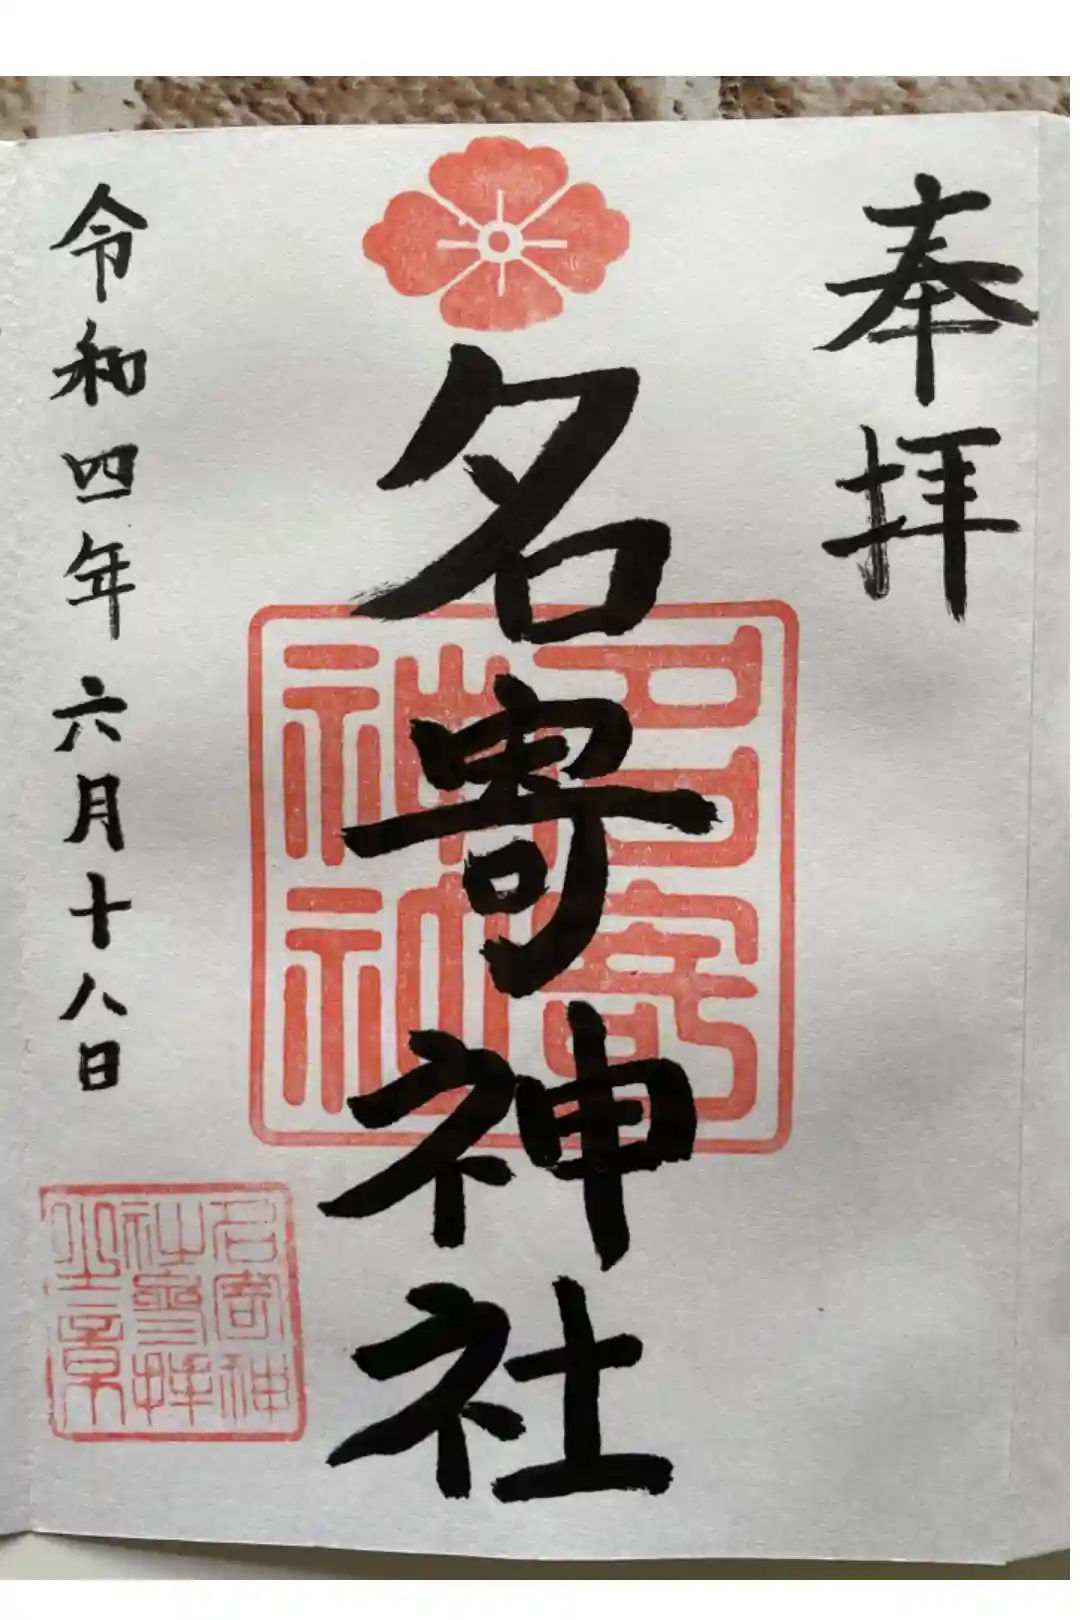 奉拝
名寄神社
名寄
神社
令和四年六月十八日
名寄神
社參拝
之章